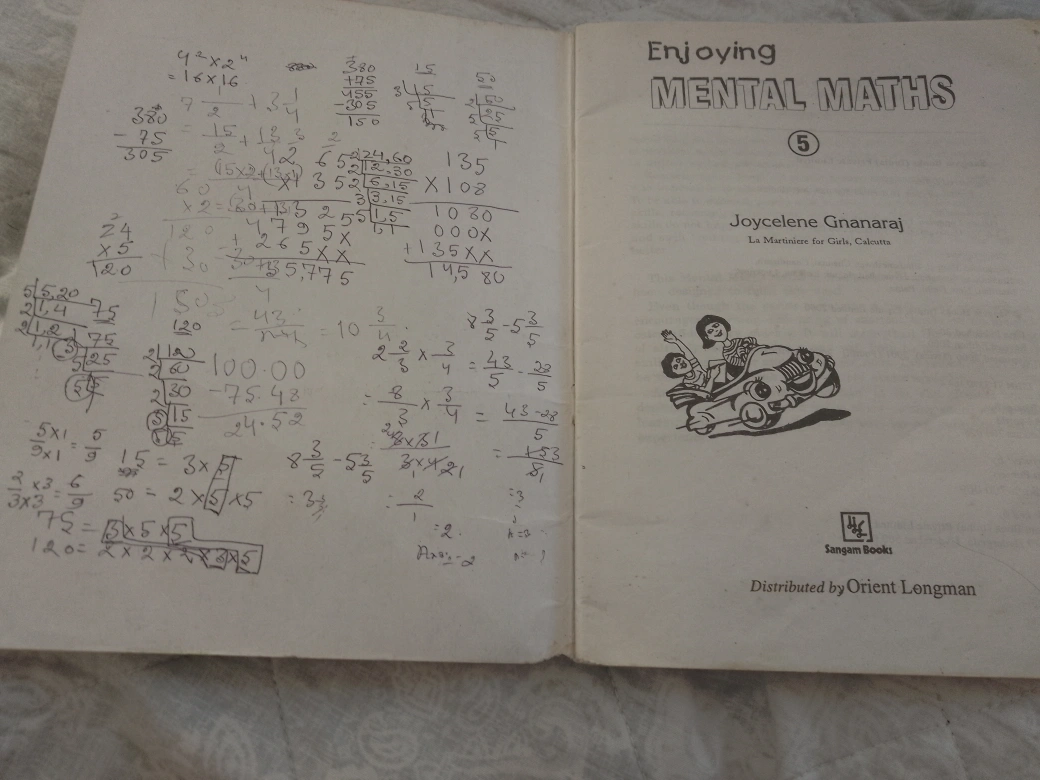 4² × 2⁴
= 16 × 16
7 1/2 + 3 1/4
= 15/2 + 13/4
380
- 75
305
380
+75
455
-305
150
15
3 15
5 5
50
2 50
5 25
5 5
1
2 24,60
2 12,30
2 6,15
3 3,15
5 1,5
1,1
265
× 135
1325
795×
+ 265××
35,775
135
× 108
1080
000×
+135××
14,580
24
×5
120
60
×2
120
+ 30
150
5 5,20
2 1,4
2 1,2
1,1
75
3 75
5 25
5 5
120
2 120
2 60
2 30
3 15
5 5
100.00
-75.48
24.52
= 43/4 = 10 3/4
2 2/3 × 3/4
= 8/3 × 3/4
= 2/1
= 2
Ans = 2
8 3/5 - 5 3/5
= 43/5 - 28/5
= 43-28/5
= 15/5
= 3
8 3/5 - 5 3/5
5×1/9×1 = 5/9
2/3 ×3/×3 = 6/9
15 = 3 × 5
50 = 2 × 5 × 5
75 = 3 × 5 × 5
120 = 2 × 2 × 2 × 3 × 5
Enjoying
MENTAL MATHS
5
Joycelene Gnanaraj
La Martiniere for Girls, Calcutta
Sangam Books
Distributed by Orient Longman